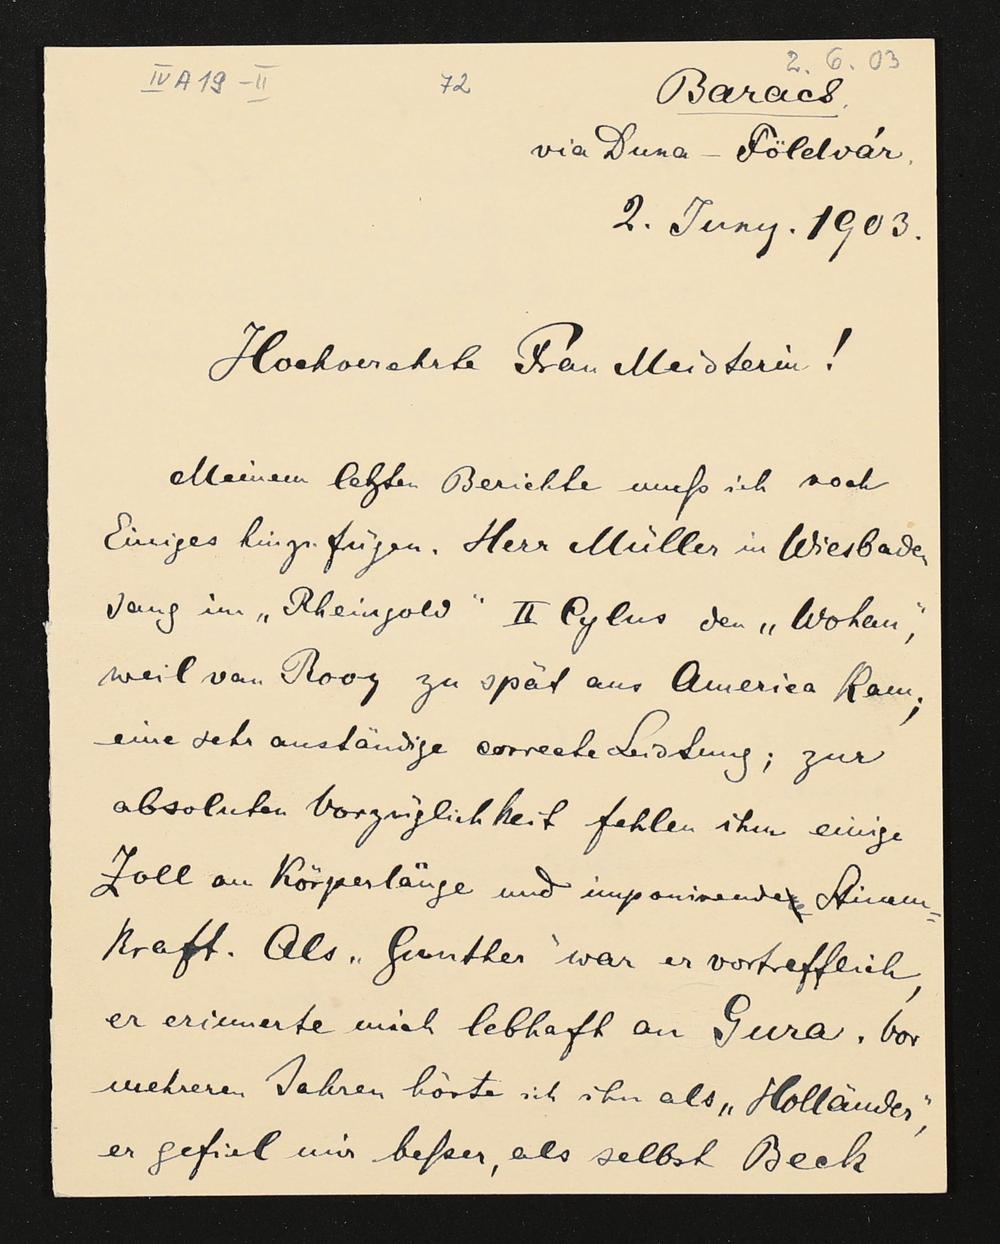 IV A 19 - II
72
2. 6. 03
Baracs.
via Duna - Földvár.
2. Juny. 1903.
Hochverehrte Frau Meisterin!
Meinem letzten Berichte muß ich noch
Einiges hinzufügen. Herr Müller in Wiesbaden
sang im „Rheingold" II Cylus den „Wotan",
weil van Rooy zu spät aus America kam;
eine sehr anständige correcte Leistung; zur
absoluten Vorzüglichkeit fehlen ihm einige
Zoll an Körperlänge und imponirende Stimm=
kraft. Als „Gunther" war er vortrefflich,
er erinnerte mich lebhaft an Gura. Vor
mehreren Jahren hörte ich ihn als „Holländer",
er gefiel mir beßer, als selbst Beck